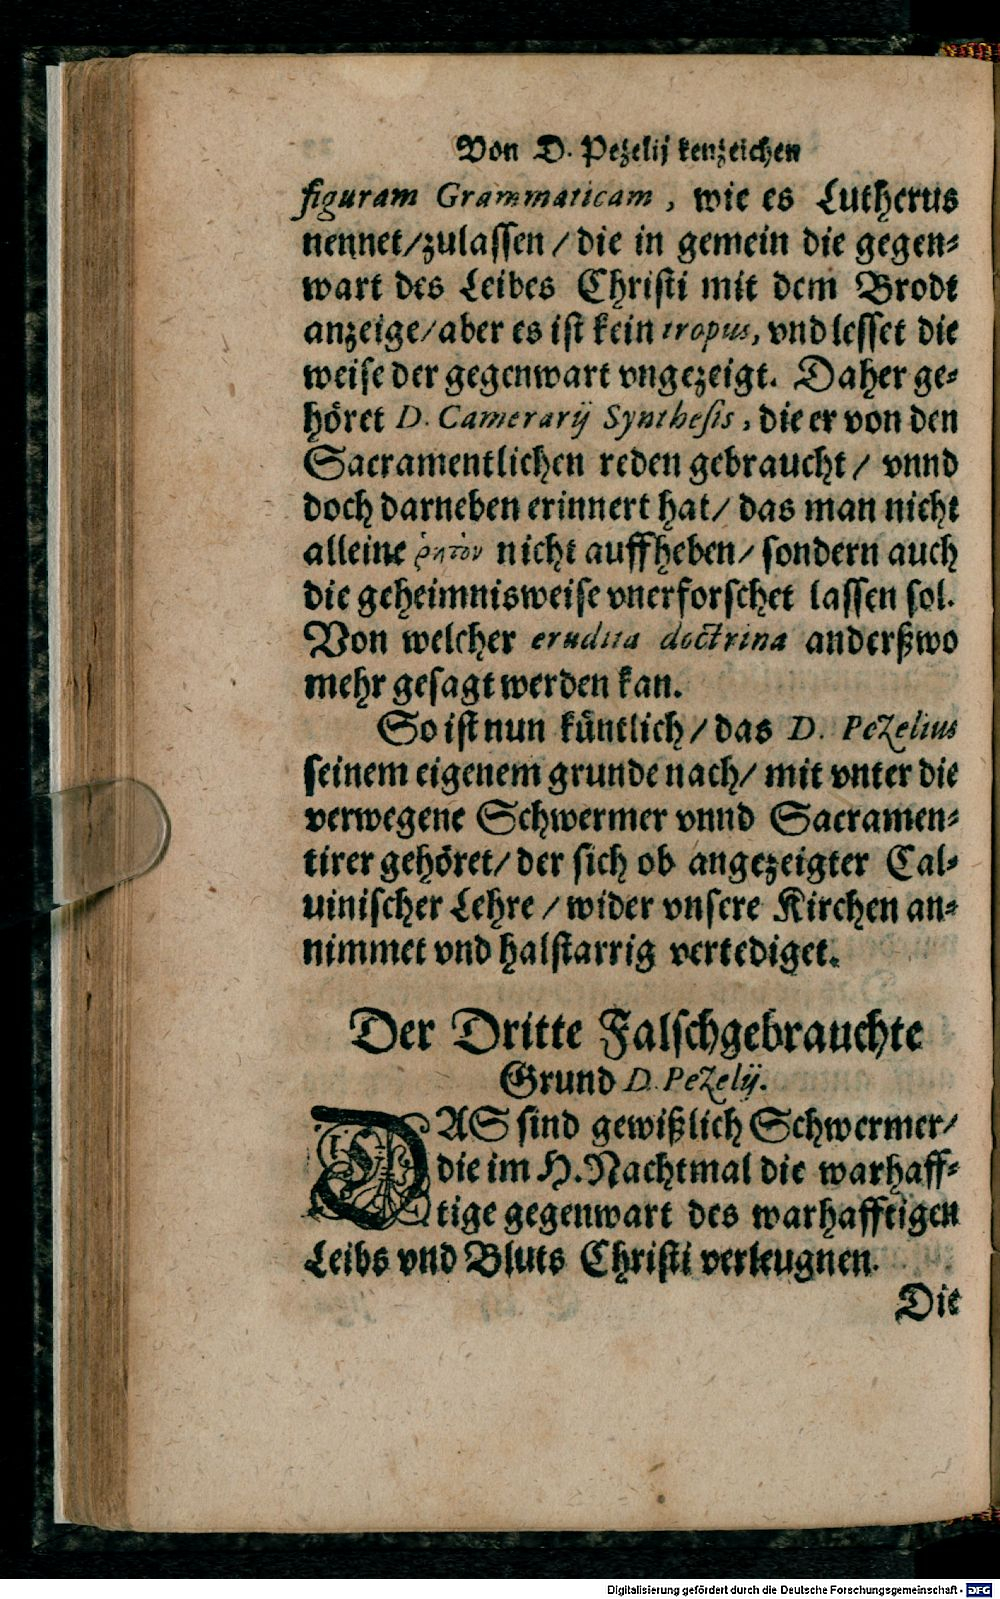 Von D. Pezelij kenzeichen
figuram Grammaticam, wie es Lutherus
nennet/zulassen/die in gemein die gegen-
wart des Leibes Christi mit dem Brodt
anzeige/aber es ist kein tropus, vnd lesset die
weise der gegenwart vngezeigt. Daher ge-
höret D. Camerarij Synthesis, die er von den
Sacramentlichen reden gebraucht/ vnnd
doch darneben erinnert hat/ das man nicht
alleine ῥητὸν nicht auffheben/ sondern auch
die geheimnisweise vnerforschet lassen sol.
Von welcher erudita doctrina anderßwo
mehr gesagt werden kan.
So ist nun küntlich/das D. Pezelius
seinem eigenem grunde nach/ mit vnter die
verwegene Schwermer vnnd Sacramen-
tirer gehöret/ der sich ob angezeigter Cal-
uinischer Lehre/wider vnsere Kirchen an-
nimmet vnd halstarrig vertediget.
Der Dritte Falschgebrauchte
Grund D. Pezelij.
DAS sind gewißlich Schwermer/
die im H. Nachtmal die warhaff-
tige gegenwart des warhafftigen
Leibs vnd Bluts Christi verleugnen.
Die
Digitalisierung gefördert durch die Deutsche Forschungsgemeinschaft - DFG